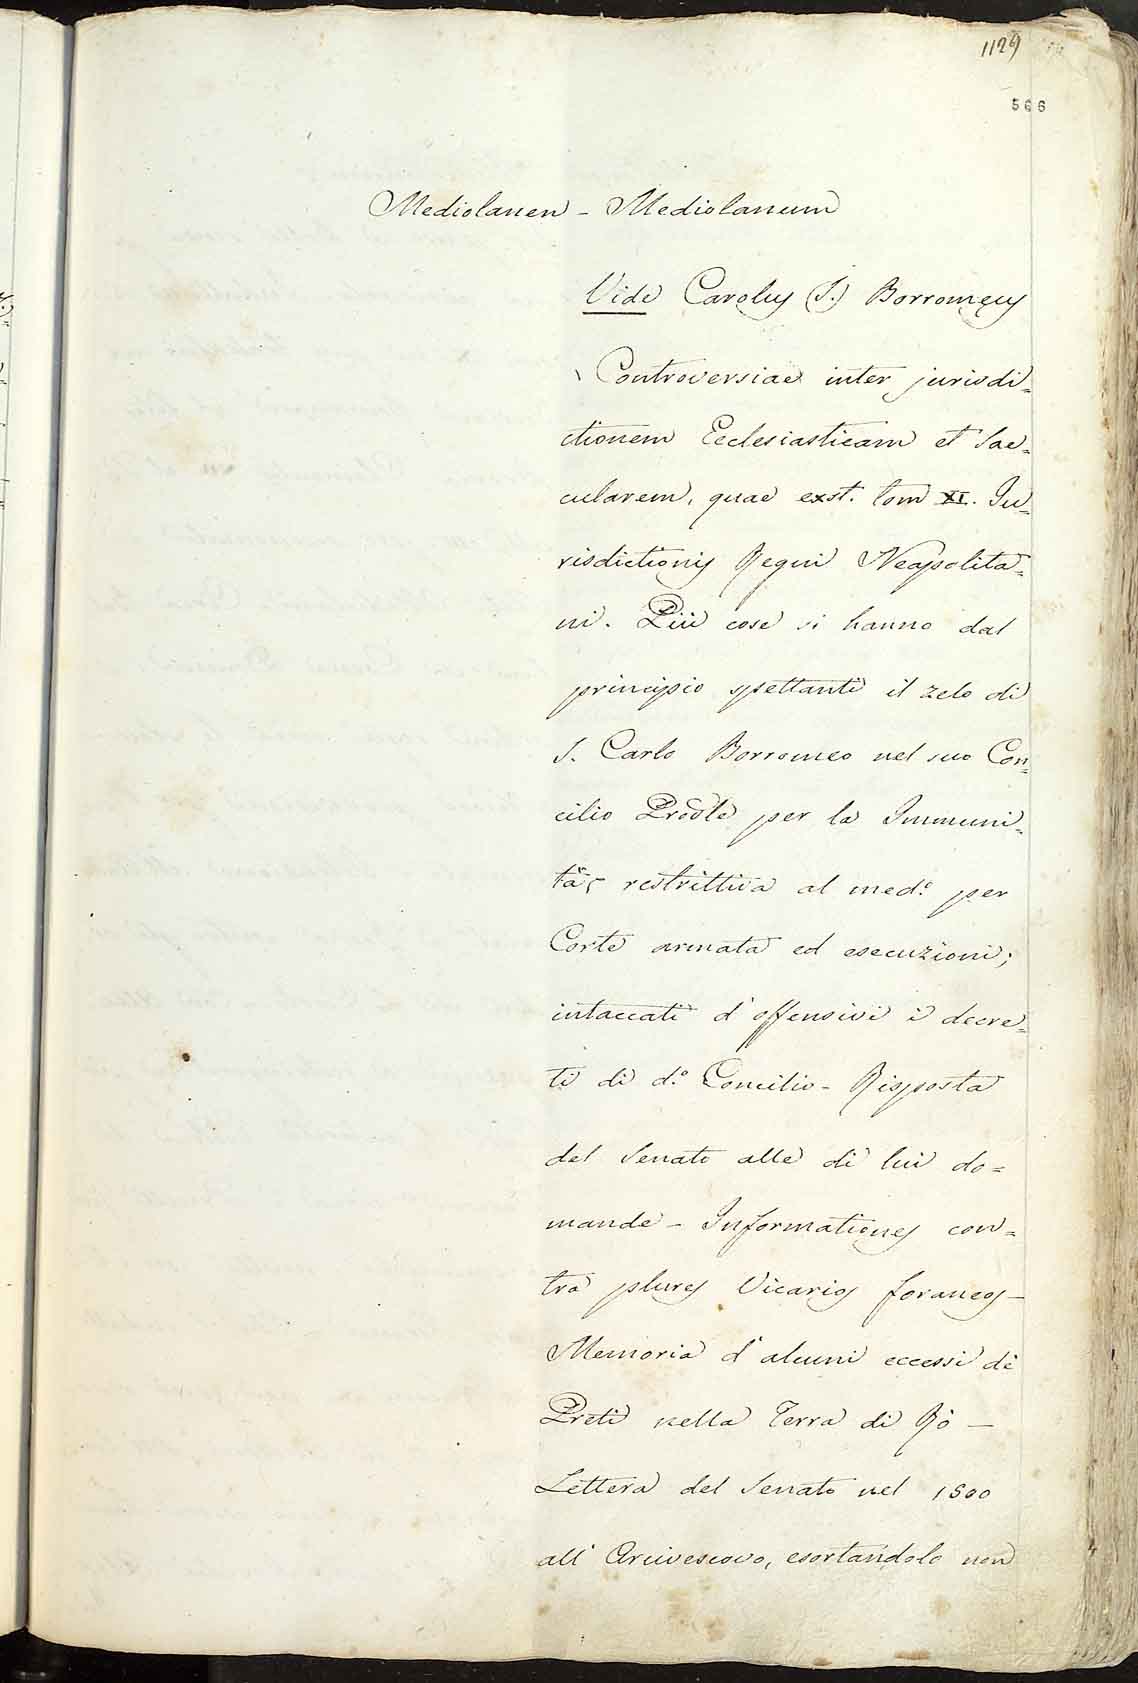 1129
566
Mediolanen - Mediolanum
Vide Carolus (S.) Borromeus
Controversiae inter jurisdi=
ctionem Ecclesiasticam et Sae=
cularem, quae exst. tom XI. Ju=
risdictionis Regni Neapolita=
ni. Più cose si hanno dal
principio spettanti il zelo di
S. Carlo Borromeo nel suo Con=
cilio Prõle per la Immuni=
tà, restrittiva al med.º per
Corte armata ed esecuzioni;
intaccati d'offensivi i decre=
ti di d.º Concilio - Risposta
del Senato alle di lui do=
mande - Informationes con=
tra plures Vicarios foraneos -
Memoria d'alcuni eccessi de
Preti nella Terra di Rò -
Lettera del Senato nel
all' Arcivescovo, esortandolo non